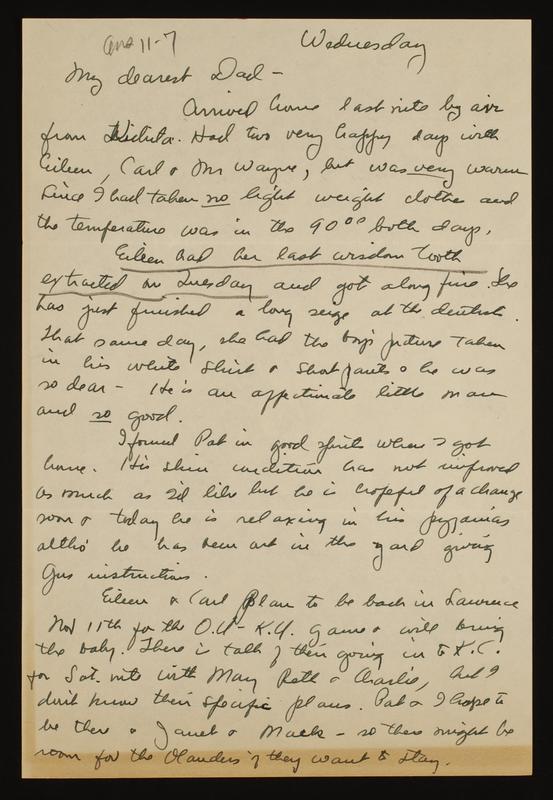 ans 11-7
Wednesday
My dearest Dad -
Arrived home last nite by air
from Wichita. Had two very happy days with
Eileen, Carl & Mr Wayne, but was very warm
since I had taken no light weight clothes and
the temperature was in the 90°° both days.
Eileen had her last wisdom tooth
extracted on Tuesday and got along fine. She
has just finished a long seige at the dentist.
That same day, she had the boys picture taken
in his white shirt & short pants & he was
so dear - He is an affectionate little man
and so good.
I found Pat in good spirits when I got
home. His skin condition has not improved
as much as I'd like but he is hopeful of a change
soon & today he is relaxing in his pyjamas
altho' he has been out in the yard giving
Gus instructions.
Eileen & Carl plan to be back in Lawrence
Nov 11th for the O.U - K.U. game & will bring
the baby. There is talk of their going in to K.C.
for Sat. nite with Mary Ruth & Charlie, but I
don't know their specific plans. Pat & I hope to
be there & Janet & Mack - so there might be
room for the Olanders if they want to stay.